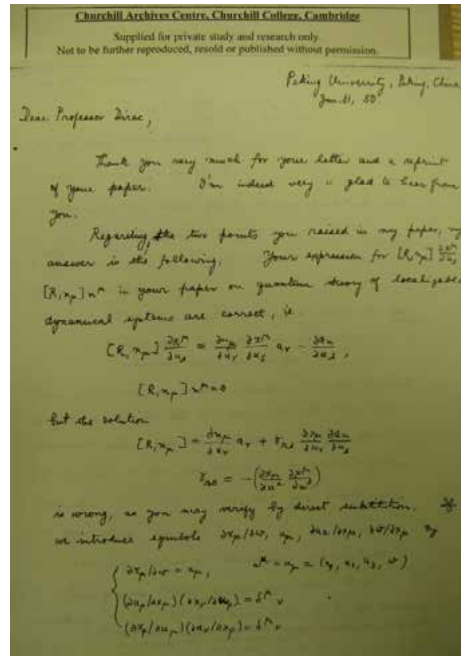 Churchill Archives Centre, Churchill College, Cambridge
Supplied for private study and research only
Not to be further reproduced, resold or published without permission.
Peking University, Peking, China
Jan. 11, 50
Dear Professor Dirac,
Thank you very much for your letter and a reprint
of your paper. I'm indeed very glad to hear from
you.
Regarding the two points you raised in my paper, my
answer is the following. Your expression for [R, x_μ] ∂x^μ/∂u_s
[R, x_μ] n^μ in your paper on quantum theory of localizable
dynamical systems are correct, i.e.
[R, n_μ] n^μ = 0
but the solution
is wrong, as you may verify by direct substitution. If
we introduce symbols ∂x_μ/∂w, u_μ, ∂u_ν/∂x_μ, ∂w/∂x_μ by
∂x_μ/∂w = n_μ, u^μ = u_μ = (u_1, u_2, u_3, w)